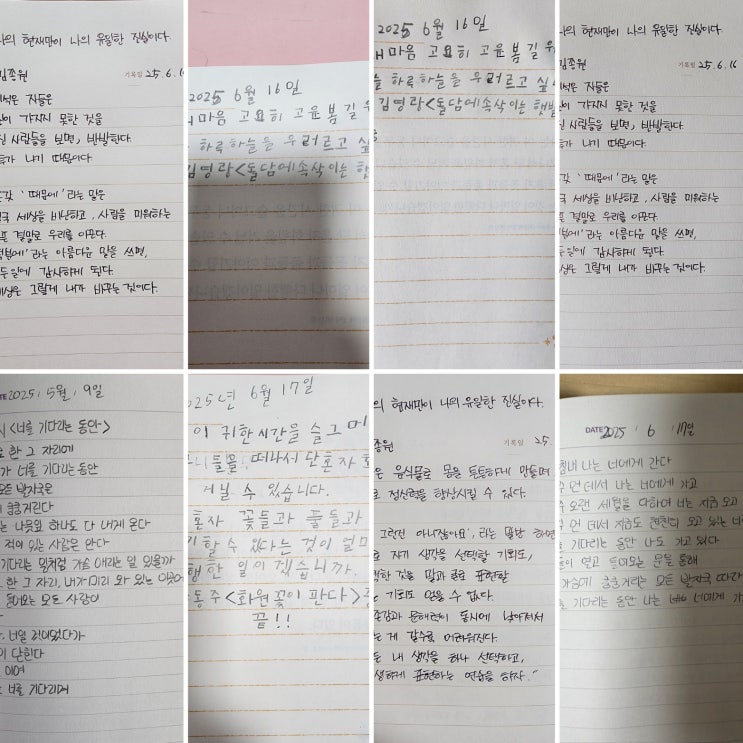 나의 현재만이 나의 유일한 진실이다.
김종원
기록일 25.6.16
석은 자들은
이 가지지 못한 것을
진 사람들을 보면, 반발한다.
가 나기 때문이다.
'때문에'라는 말은
국 세상을 비난하고, 사람을 미워하는
픈 결말로 우리를 이끈다.
덕분에'라는 아름다운 말을 쓰면,
두 일에 감사하게 된다.
세상은 그렇게 내가 바꾸는 것이다.
2025 6월 16일
내 마음 고요히 고운 봄 길 위
하루 하늘을 우러르고 싶
김영랑<돌담에 속삭이는 햇
2025 6월 16일
내 마음 고요히 고운 봄 길 위
늘 하루 하늘을 우러르고 싶
김영랑<돌담에 속삭이는 햇발
나의 현재만이 나의 유일한 진실이다.
김종원
기록일 25.6.16
석은 자들은
이 가지지 못한 것을
진 사람들을 보면, 반발한다.
가 나기 때문이다.
'때문에'라는 말은
국 세상을 비난하고, 사람을 미워하는
픈 결말로 우리를 이끈다.
덕분에'라는 아름다운 말을 쓰면,
두 일에 감사하게 된다.
세상은 그렇게 내가 바꾸는 것이다.
DATE 2025. 5월. 9일
시 <너를 기다리는 동안>
한 그 자리에
가 너를 기다리는 동안
모든 발자국은
쿵쿵거린다
는 나뭇잎 하나도 다 내게 온다
적이 있는 사람은 안다
기다리는 일처럼 가슴 애리는 일 있을까
한 그 자리, 내가 미리 와 있는 이곳에
들어오는 모든 사람이
너일 것이었다가
이 닫힌다
이여
너를 기다리며
2025년 6월 17일
이 귀한 시간을 슬그머
니들을 떠나서 단 혼자
거닐 수 있습니다.
혼자 꽃들과 풀들과
기할 수 있다는 것이 얼마
행한 일이겠습니까.
동주<화원꽃이 판다>
끝!!
의 현재만이 나의 유일한 진실이다.
종원
기록일 25.
은 음식물로 몸을 튼튼하게 만들며
로 정신력을 향상시킬 수 있다.
그런건 아니잖아요', 라는 말만 하면
로 자기 생각을 선택할 기회도,
택한 것을 말과 글로 표현할
기회도 얻을 수 없다.
존감과 문해력이 동시에 낮아져서
는 게 갈수록 어려워진다.
든 내 생각을 하나 선택하고,
생하게 표현하는 연습을 하자."
DATE 2025 . 6 . 17일
침내 나는 너에게 간다
주 먼 데서 나는 너에게 가고
주 오랜 세월을 다하여 너는 지금 오고
주 먼 데서 지금도 천천히 오고 있는 너
기다리는 동안 나도 가고 있다
들이 열고 들어오는 문을 통해
가슴에 쿵쿵거리는 모든 발자국 따라
너를 기다리는 동안 나는 너에게 가